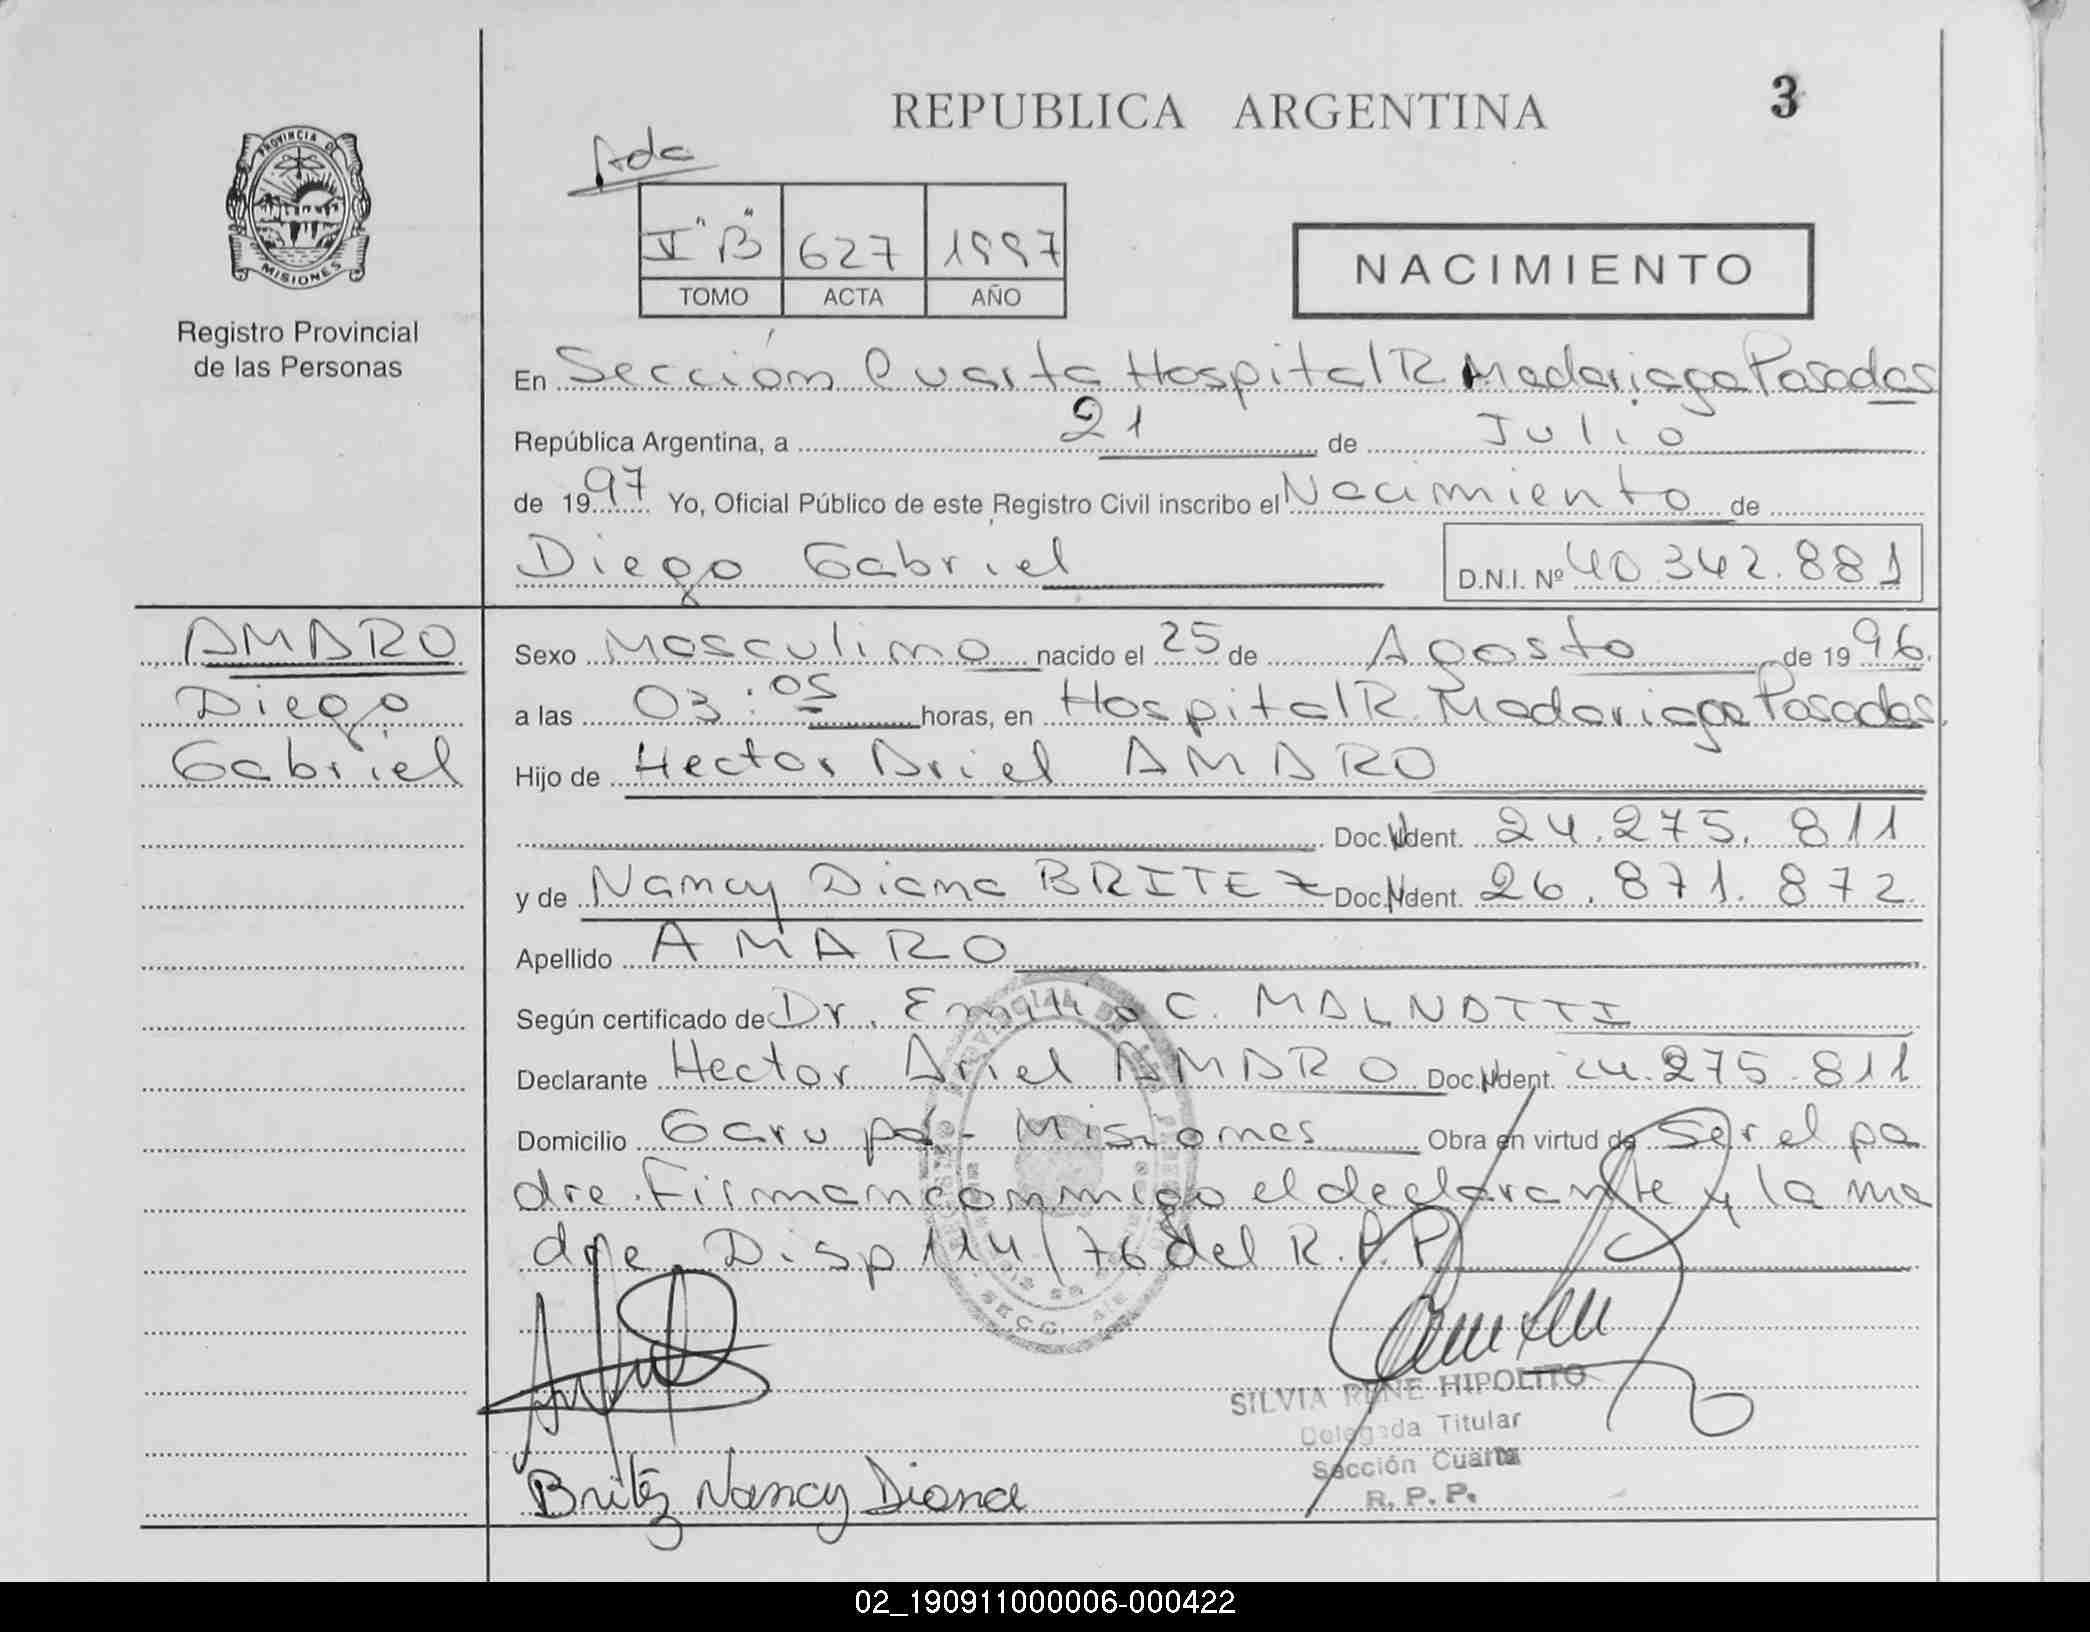 REPUBLICA ARGENTINA
3
PROVINCIA DE
MISIONES
Registro Provincial
de las Personas
"B" 627 1997
TOMO ACTA AÑO
NACIMIENTO
En Sección Cuarta Hospital R. Madariaga Posadas
República Argentina, a 21 de Julio
de 1997 Yo, Oficial Público de este Registro Civil inscribo el Nacimiento de
Diego Gabriel D.N.I. Nº 40.342.881
AMARO
Diego
Gabriel
Sexo Masculino nacido el 25 de Agosto de 1996.
a las 03:05 horas, en Hospital R. Madariaga Posadas.
Hijo de Hector Ariel AMARO
Doc. Ident. 24.275.811
y de Nancy Diana BRITEZ Doc. Ident. 26.871.872
Apellido AMARO
Según certificado de Dr. Emilio C. MALNATTI
Declarante Hector Ariel AMARO Doc. Ident. 24.275.811
Domicilio Garupá - Misiones Obra en virtud de Ser el pa
dre. Firman conmigo el declarante y la ma
dre Disp 114/76 del R.P.P.
SILVIA RENE HIPOLITO
Delegada Titular
Sección Cuarta
R. P. P.
Britez Nancy Diana
02_190911000006-000422